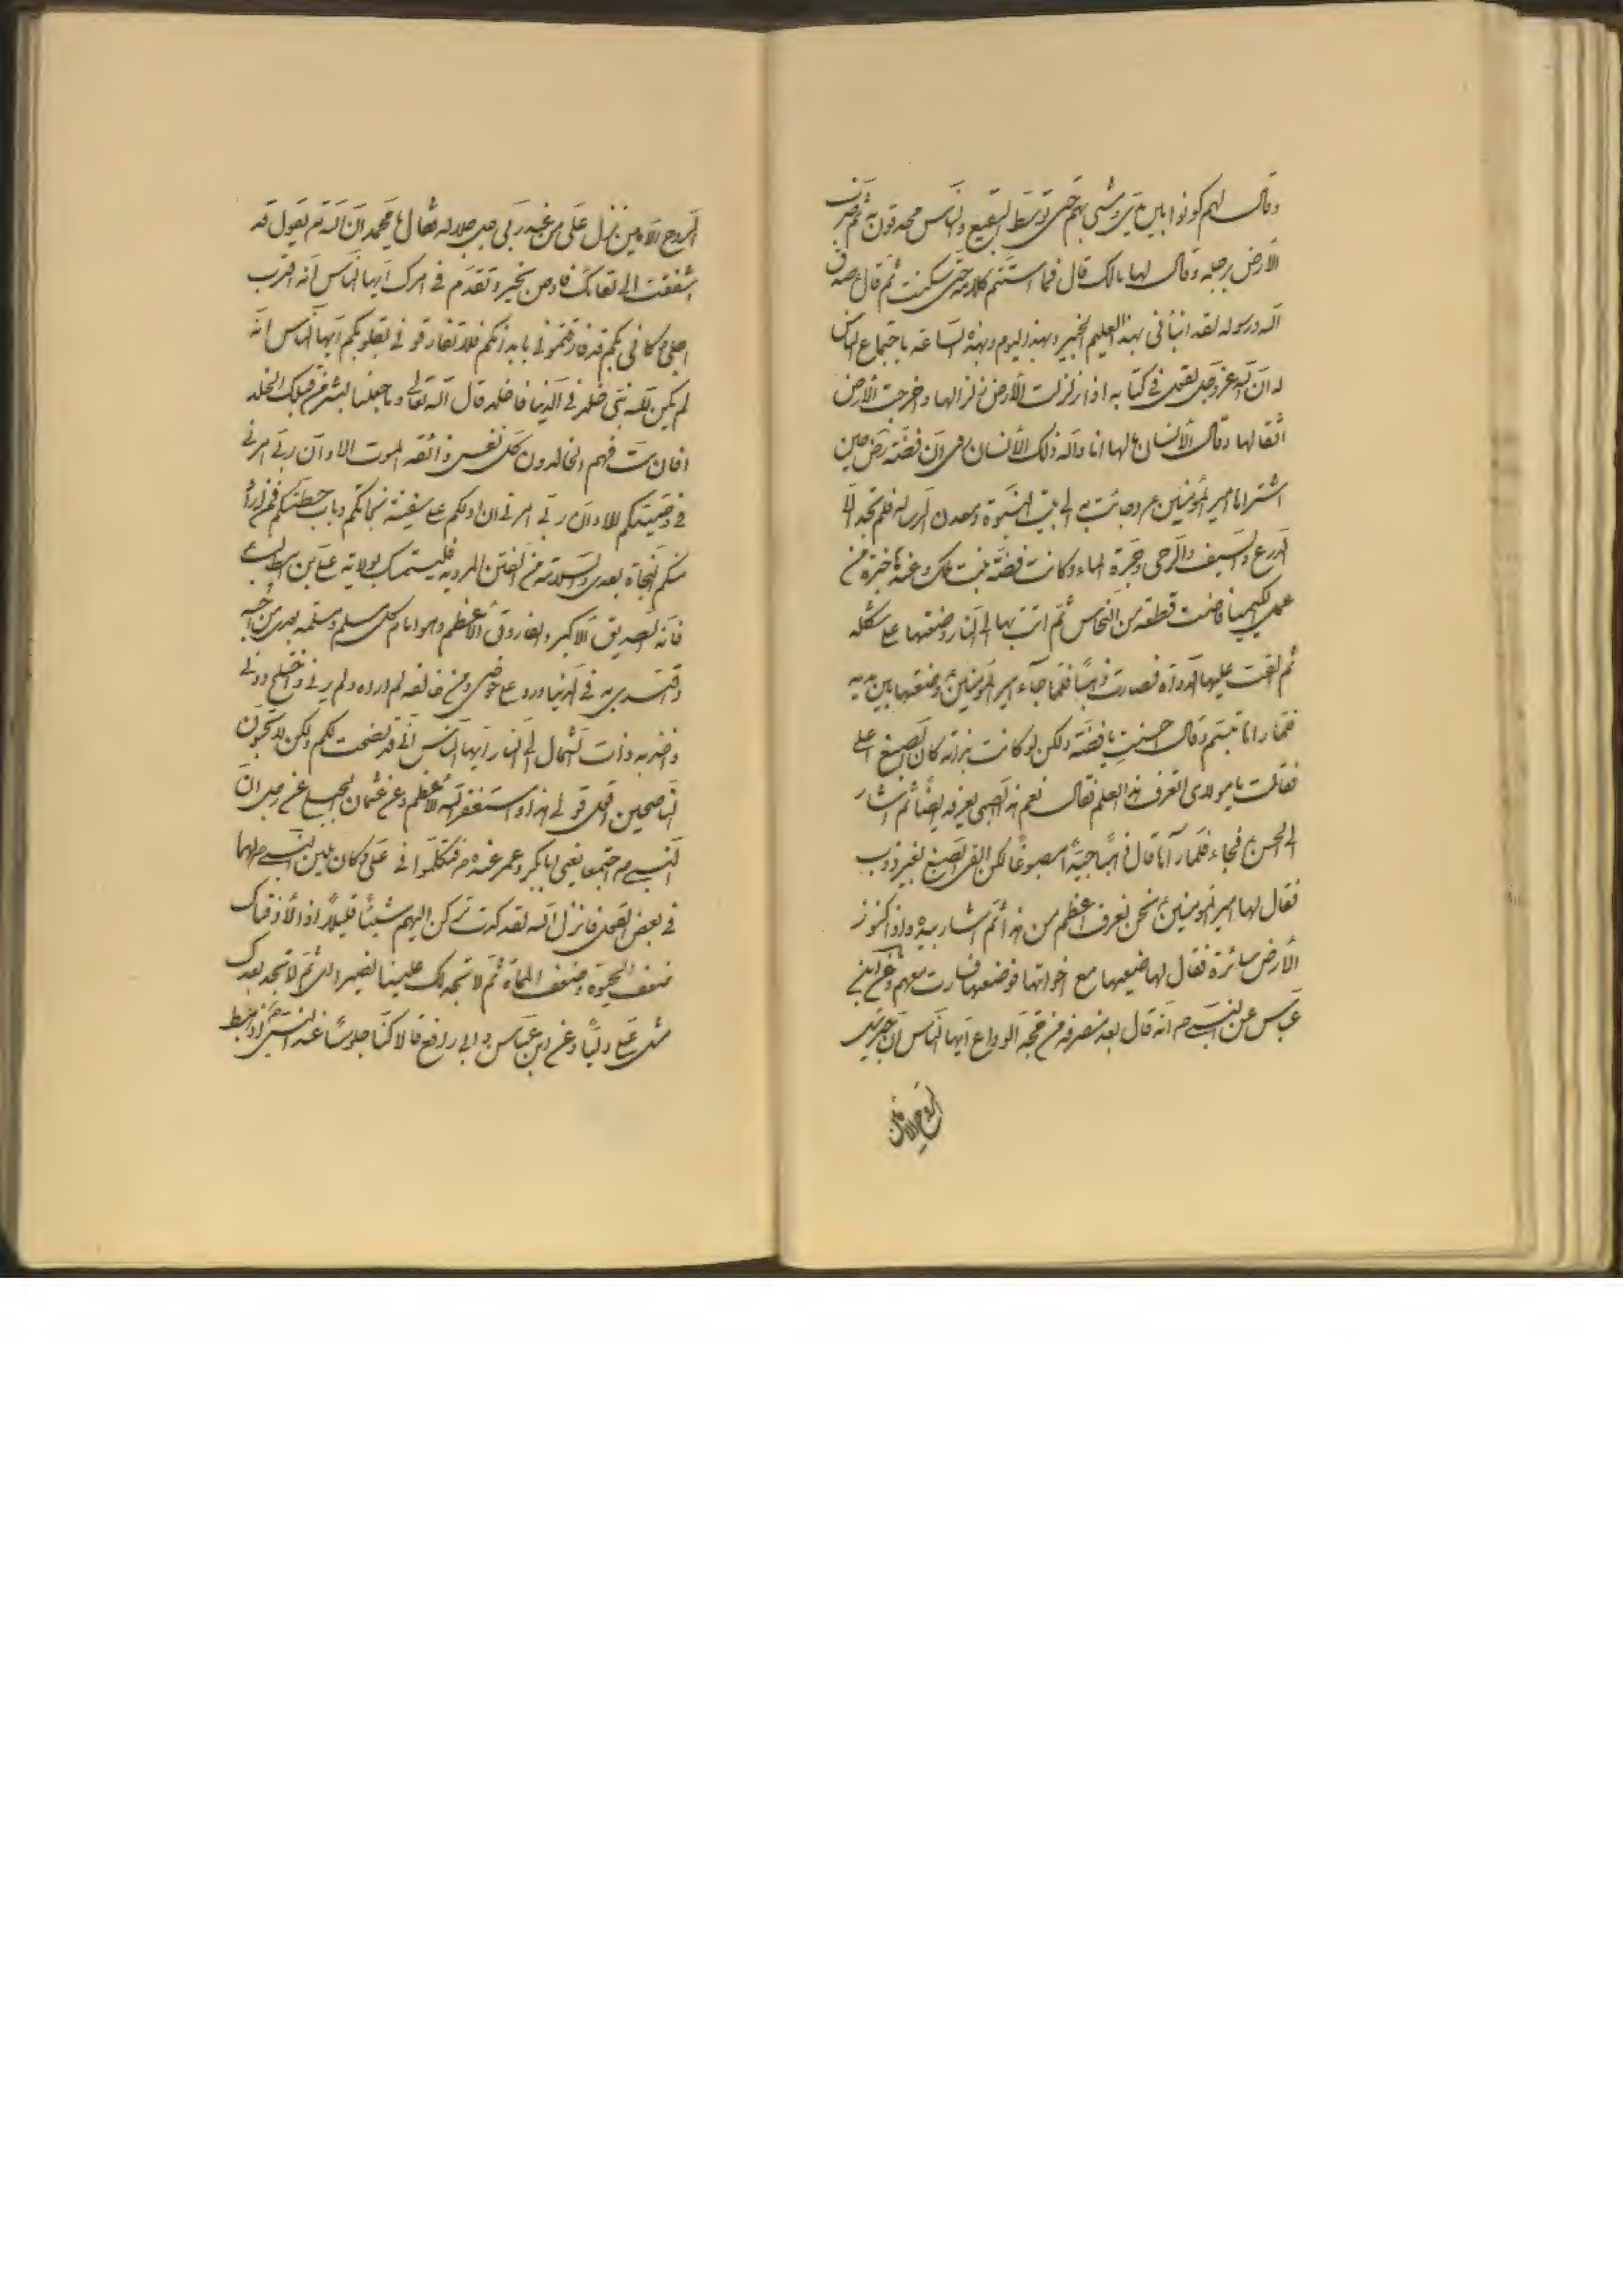 وقال لهم كونوا بين يدي ومشى بهم حتى توسط البقيع والناس محدقون به ثم ضرب
الأرض برجله وقال لها مالك قال فما استتم كلامه حتى سكنت ثم قال صدق
الله ورسوله لقد انبأني بهذا العليم الخبير وبهذا اليوم وبهذه الساعة باجتماع الناس
له ان الله عز وجل يقول في كتابه اذا زلزلت الأرض زلزالها واخرجت الأرض
اثقالها وقال الأنسان مالها انا والله ذلك الأنسان روى ان فضة رض حين
اشتراها امير المؤمنين ع وجائت به الى بيت النبوة ومعدن الرسالة فلم تجد الا
الدرع والسيف والرحى وجرة الماء وكانت فضة بنت ملك وعندها ذخيرة من
عمل الكيميا فاخذت قطعة من النحاس ثم اتت بها الى النار وضعتها على شكله
ثم القت عليها الدواء فصارت ذهبا فلما جاء امير المؤمنين ع وضعتها بين يديه
فلما راها تبسم وقال احسنت يا فضة ولكن لو كانت كان الصبغ اعلى
فقالت يا مولاي اتعرف هذا العلم فقال نعم هذا الصبي يعرفه ايضا ثم اشار
الى الحسن ع فجاء فلما رآها قال
فقال لها امير المؤمنين ع نحن نعرف اعظم من هذا ثم اشار بيده واذا كنوز
الأرض سائرة فقال لها ضعيها مع اخواتها فوضعتها فسارت معهم وعن ابن
عباس عن النبي ص انه قال بعد منصرفه من حجة الوداع ايها الناس ان جبرئيل
الروح الامين
الروح الامين نزل علي من عند ربي جل جلاله فقال يا محمد ان الله تعالى يقول قد
اشتقت الى لقائك فاوص بخير وتقدم في امرك ايها الناس انه اقترب
اجلي وكاني بكم قد فارقتموني بابدانكم فلا تفارقوني بقلوبكم ايها الناس انه
لم يكن لله نبي خلد في الدنيا فاخلد قال الله تعالى وما جعلنا لبشر من قبلك الخلد
افان مت فهم الخالدون كل نفس ذائقة الموت الا وان ربي امرني
في وصيتكم الا وان ربي امرني ان ادلكم على سفينة نجاتكم وباب حطتكم فمن اراد
منكم النجاة بعدي والسلامة من الفتن المردية فليتمسك بولاية علي بن ابيطالب ع
فانه الصديق الاكبر والفاروق الاعظم وهو امام كل مسلم ومسلمة بعدي من احبه
واقتدى به في الدنيا ورد على حوضي ومن خالفه لم ارده ولم يرني واختلج دوني
واخذ به ذات الشمال الى النار ايها الناس اني قد نصحت لكم ولكن لا تحبون
الناصحين اقول قولي هذا واستغفر الله الاعظم وعن عثمان بن عن رجل ان
النبي ص اجتمعا يعني ابابكر وعمر عنده فتكلموا في علي وكان من النبي ص لهما
في بعض القول فانزل الله لقد كدت تركن اليهم شيئا قليلا اذا لأذقناك
ضعف الحيوة وضعف المماة ثم لا تجد لك علينا نصيرا اي ثم لا تجد بعدك
مثل علي وليا وعن ابن عباس وابي رافع قالا كنا جلوسا عند النبي ص اذ هبط